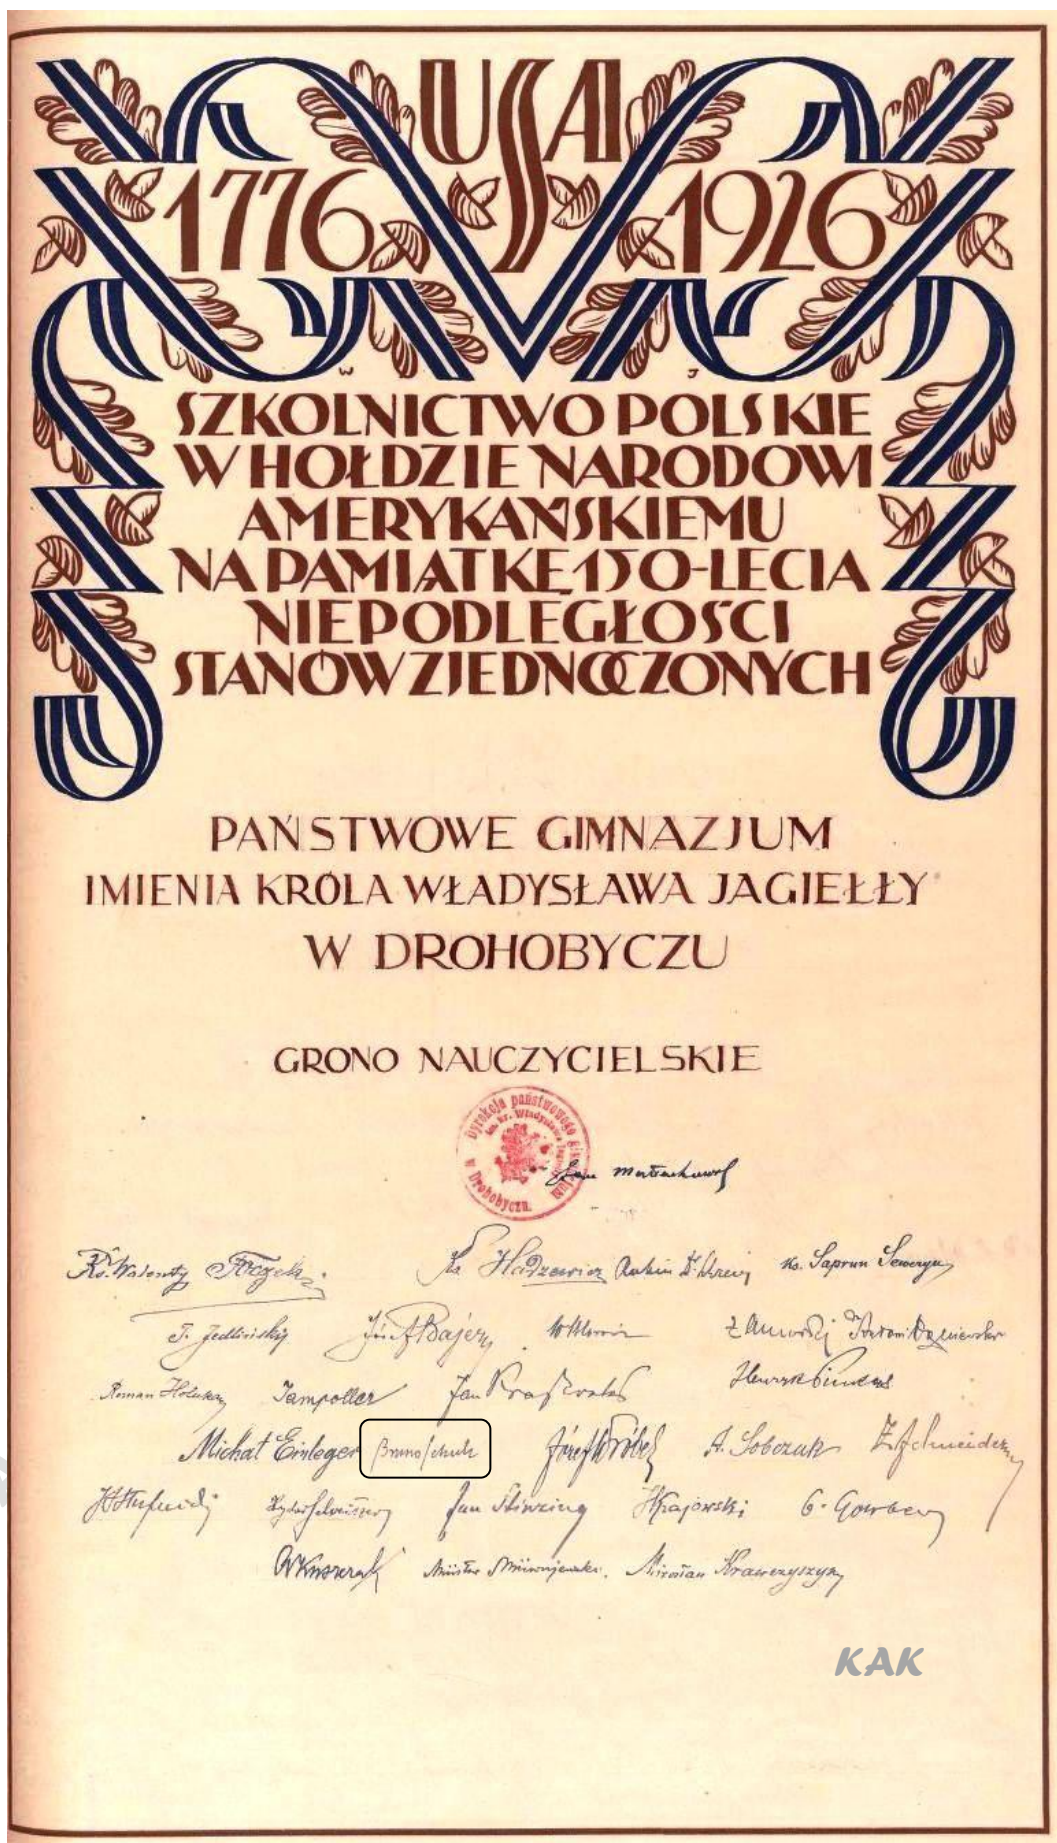 USA
1776 1926
W J
SZKOLNICTWO POLSKIE
W HOŁDZIE NARODOWI
AMERYKAŃSKIEMU
NA PAMIĄTKĘ 150-LECIA
NIEPODLEGŁOŚCI
STANÓW ZJEDNOCZONYCH
PAŃSTWOWE GIMNAZJUM
IMIENIA KRÓLA WŁADYSŁAWA JAGIEŁŁY
W DROHOBYCZU
GRONO NAUCZYCIELSKIE
Dyrekcja państwowego
im. kr. Władysława
w Drohobyczu.
Ks. Walenty Ks. Hadzewicz Ks. Saprun Seweryn
T. Jedliński Józef Bajery
Roman Tampoller Jan
Michał Einleger Bruno Schulz Józef Wróbel A. Sobczak Z. Schneider
Jan Krajowski G.
Mirosław Krawczyszyn
KAK